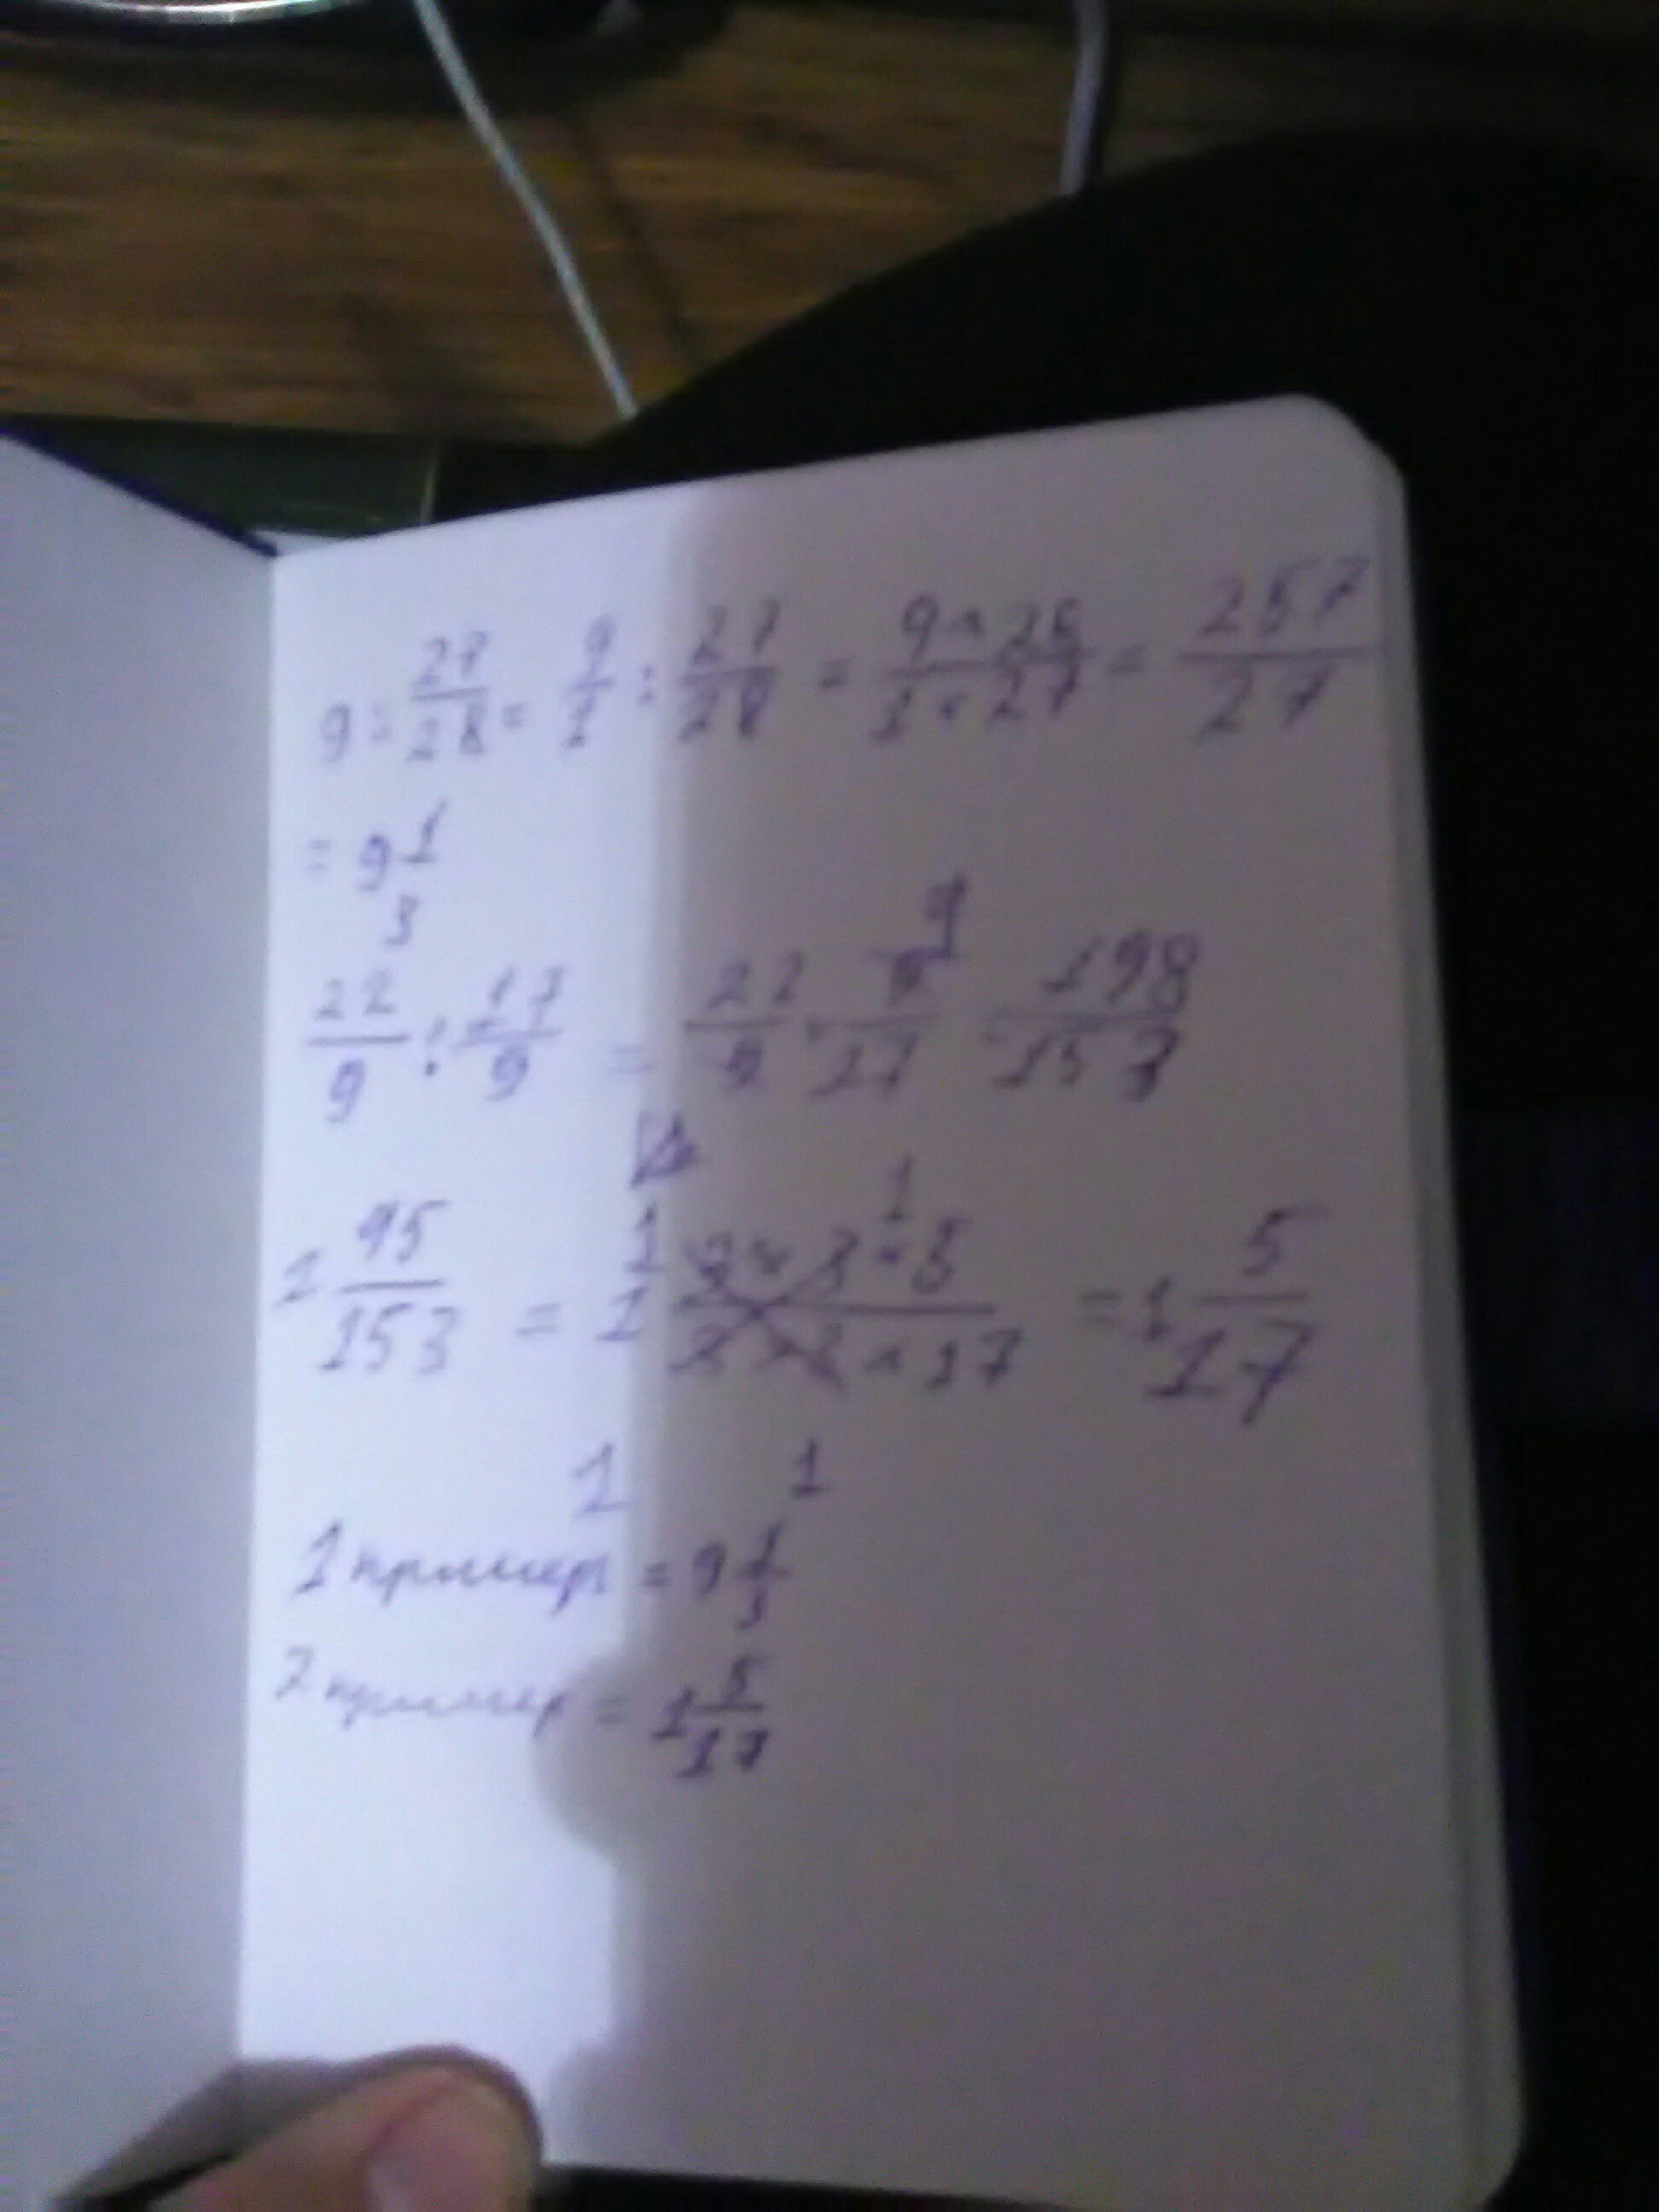 9 : 27/28 = 9/1 : 27/28 = 9 × 28 / 1 × 27 = 257/27
= 9 1/3
22/9 : 17/9 = 22/9 · 9/17 = 198/153
1 45/153 = 1 3 × 3 × 5 / 3 × 3 × 17 = 1 5/17
1 1
1 пример = 9 1/3
2 пример = 1 5/17